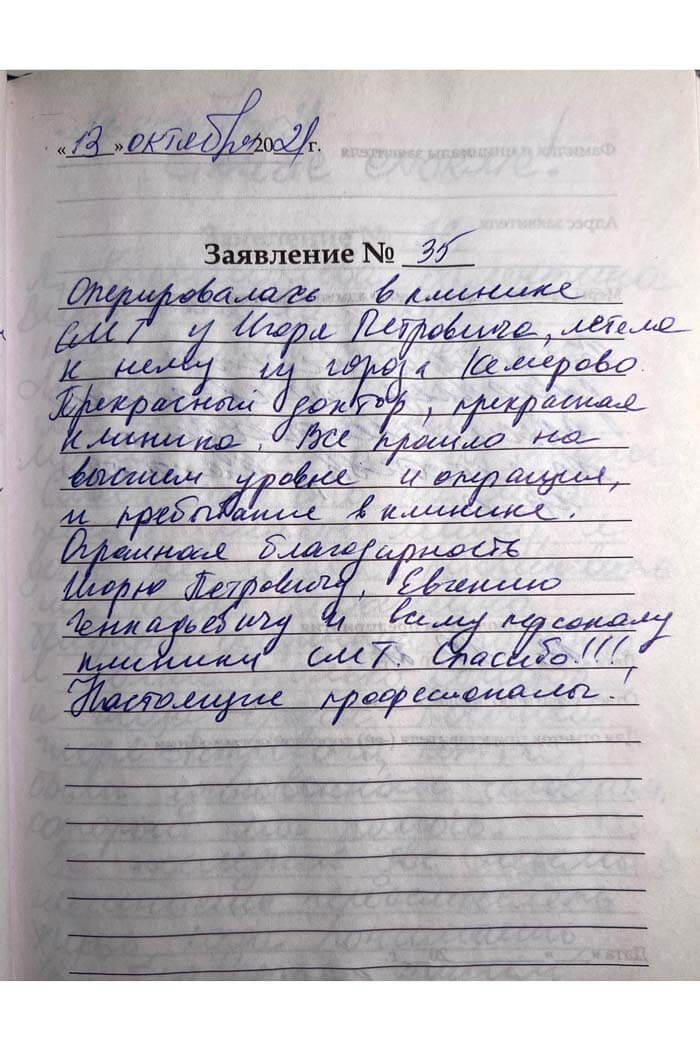 « 13 » октября 2021 г.
Заявление № 35
Оперировалась в клинике
СМТ у Игоря Петровича, летела
к нему из города Кемерово.
Прекрасный доктор, прекрасная
клиника. Все прошло на
высшем уровне и операция,
и пребывание в клинике.
Огромная благодарность
Игорю Петровичу, Евгению
Геннадьевичу и всему персоналу
клиники СМТ. Спасибо!!!
Настоящие профессионалы!
Фамилия и инициалы заявителя
Адрес заявителя